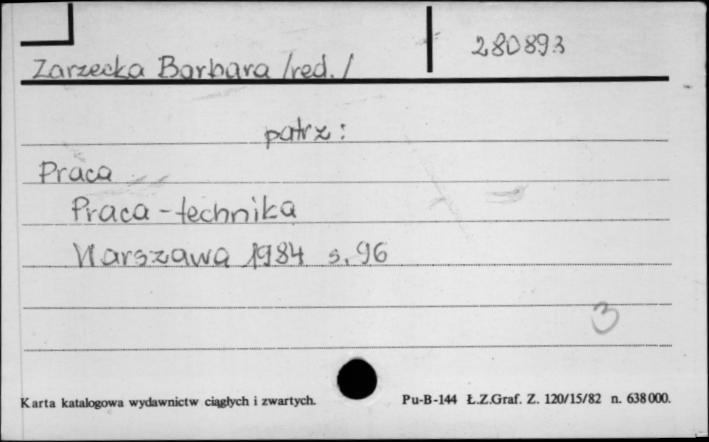 280893
Zarzecka Barbara /red./
patrz:
Praca
Praca-technika
Warszawa 1984 s. 96
3
Karta katalogowa wydawnictw ciągłych i zwartych.
Pu-B-144 Ł.Z.Graf. Z. 120/15/82 n. 638000.